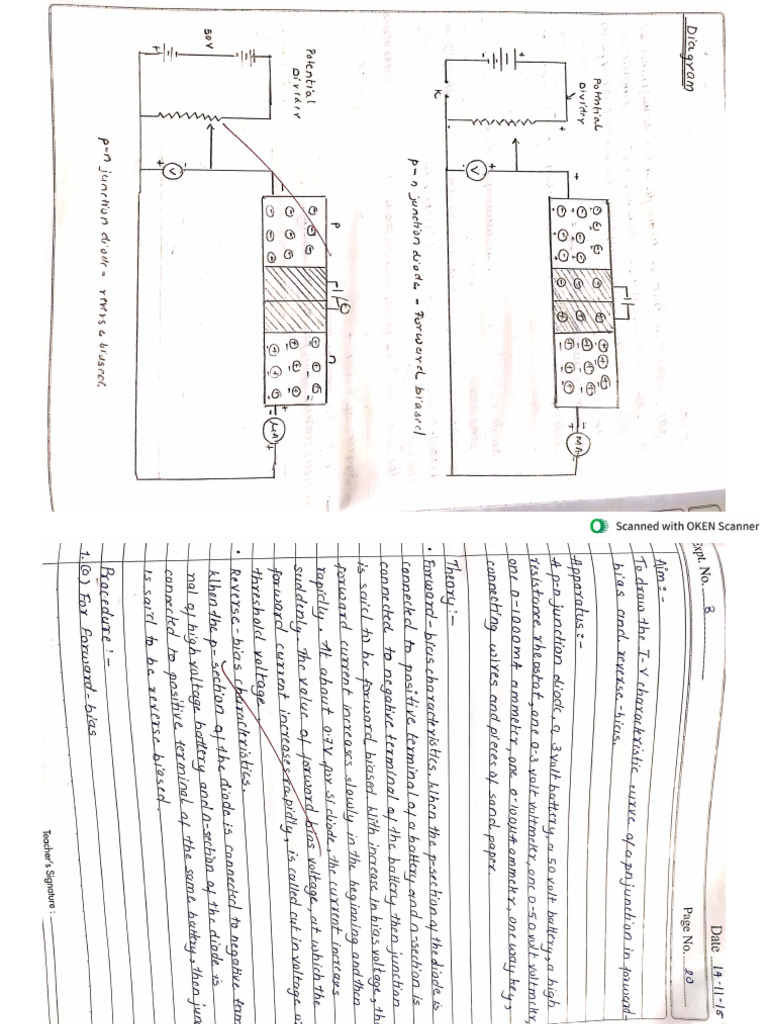 Diagram
Potential
Divider
K
MA
V
p-n junction diode - Forward biased
Potential
Divider
50V
p
n
V
μA
p-n junction diode - revers a biased
Scanned with OKEN Scanner
Expt. No. 8
Date 19-11-15
Page No. 20
Aim:-
To draw the I-V characteristic curve of a pn junction in forward-
bias and reverse-bias.
Apparatus:-
A p-n junction diode, a 3 volt battery, a 50 volt battery, a high
resistance rheostat, one 0-3 volt voltmeter, one 0-50 volt voltmeter,
one 0-1000mA ammeter, one 0-100μA ammeter, one way key,
connecting wires and pieces of sand paper
Theory:-
• Forward-bias characteristics. When the p-section of the diode is
connected to positive terminal of a battery and n-section is
connected to negative terminal of the battery then junction
is said to be forward biased. With increase in bias voltage, th
forward current increases slowly in the beginning and then
rapidly. At about 0.7V for si diode, the current increases
suddenly. The value of forward bias voltage, at which the
forward current increases rapidly, is called cut in voltage o
threshold voltage.
• Reverse-bias characteristics.
When the p-section of the diode is connected to negative term
nal of high voltage battery and n-section of the diode is
connected to positive terminal of the same battery, then jun
is said to be reverse biased.
Procedure:-
1. (a) For forward-bias
Teacher's Signature :